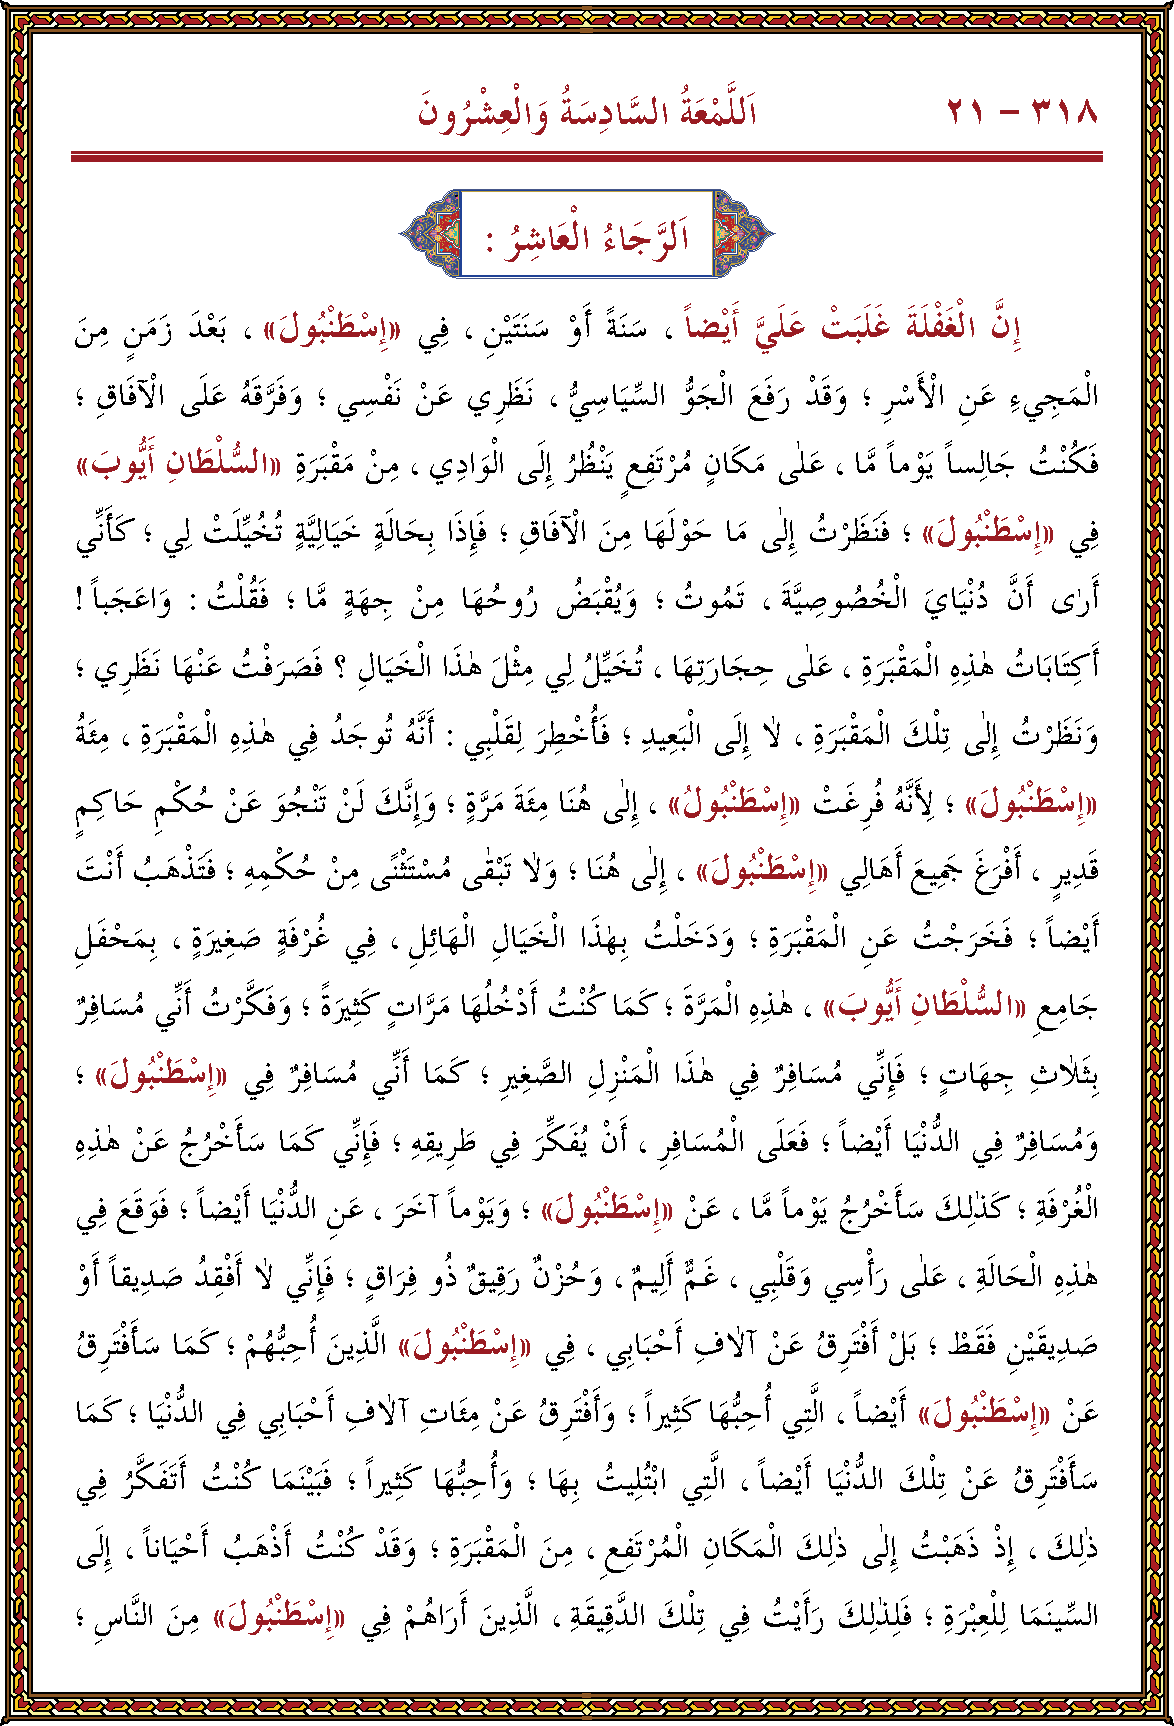 ٣١٨ – ٢١
اَللَّمْعَةُ السَّادِسَةُ وَالْعِشْرُونَ
اَلرَّجَاءُ الْعَاشِرُ :
إِنَّ الْغَفْلَةَ غَلَبَتْ عَلَيَّ أَيْضاً ، سَنَةً أَوْ سَنَتَيْنِ ، فِي «إِسْطَنْبُولَ» ، بَعْدَ زَمَنٍ مِنَ
الْمَجِيءِ عَنِ الْأَسْرِ ؛ وَقَدْ رَفَعَ الْجَوُّ السِّيَاسِيُّ ، نَظَرِي عَنْ نَفْسِي ؛ وَفَرَّقَهُ عَلَى الْآفَاقِ ؛
فَكُنْتُ جَالِساً يَوْماً مَّا ، عَلٰى مَكَانٍ مُرْتَفِعٍ يَنْظُرُ إِلَى الْوَادِي ، مِنْ مَقْبَرَةِ «السُّلْطَانِ أَيُّوبَ»
فِي «إِسْطَنْبُولَ» ؛ فَنَظَرْتُ إِلٰى مَا حَوْلَهَا مِنَ الْآفَاقِ ؛ فَإِذَا بِحَالَةٍ خَيَالِيَّةٍ تُخُيِّلَتْ لِي ؛ كَأَنِّي
أَرٰى أَنَّ دُنْيَايَ الْخُصُوصِيَّةَ ، تَمُوتُ ؛ وَيُقْبَضُ رُوحُهَا مِنْ جِهَةٍ مَّا ؛ فَقُلْتُ : وَاعَجَباً !
أَكِتَابَاتُ هٰذِهِ الْمَقْبَرَةِ ، عَلٰى حِجَارَتِهَا ، تُخَيِّلُ لِي مِثْلَ هٰذَا الْخَيَالِ ؟ فَصَرَفْتُ عَنْهَا نَظَرِي ؛
وَنَظَرْتُ إِلٰى تِلْكَ الْمَقْبَرَةِ ، لَا إِلَى الْبَعِيدِ ؛ فَأُخْطِرَ لِقَلْبِي : أَنَّهُ تُوجَدُ فِي هٰذِهِ الْمَقْبَرَةِ ، مِئَةُ
«إِسْطَنْبُولَ» ؛ لِأَنَّهُ فُرِغَتْ «إِسْطَنْبُولُ» ، إِلٰى هُنَا مِئَةَ مَرَّةٍ ؛ وَإِنَّكَ لَنْ تَنْجُوَ عَنْ حُكْمِ حَاكِمٍ
قَدِيرٍ ، أَفْرَغَ جَمِيعَ أَهَالِي «إِسْطَنْبُولَ» ، إِلٰى هُنَا ؛ وَلَا تَبْقٰى مُسْتَثْنىً مِنْ حُكْمِهِ ؛ فَتَذْهَبُ أَنْتَ
أَيْضاً ؛ فَخَرَجْتُ عَنِ الْمَقْبَرَةِ ؛ وَدَخَلْتُ بِهٰذَا الْخَيَالِ الْهَائِلِ ، فِي غُرْفَةٍ صَغِيرَةٍ ، بِمَحْفَلِ
جَامِعِ «السُّلْطَانِ أَيُّوبَ» ، هٰذِهِ الْمَرَّةَ ؛ كَمَا كُنْتُ أَدْخُلُهَا مَرَّاتٍ كَثِيرَةً ؛ وَفَكَّرْتُ أَنِّي مُسَافِرٌ
بِثَلَاثِ جِهَاتٍ ؛ فَإِنِّي مُسَافِرٌ فِي هٰذَا الْمَنْزِلِ الصَّغِيرِ ؛ كَمَا أَنِّي مُسَافِرٌ فِي «إِسْطَنْبُولَ» ؛
وَمُسَافِرٌ فِي الدُّنْيَا أَيْضاً ؛ فَعَلَى الْمُسَافِرِ ، أَنْ يُفَكِّرَ فِي طَرِيقِهِ ؛ فَإِنِّي كَمَا سَأَخْرُجُ عَنْ هٰذِهِ
الْغُرْفَةِ ؛ كَذٰلِكَ سَأَخْرُجُ يَوْماً مَّا ، عَنْ «إِسْطَنْبُولَ» ؛ وَيَوْماً آخَرَ ، عَنِ الدُّنْيَا أَيْضاً ؛ فَوَقَعَ فِي
هٰذِهِ الْحَالَةِ ، عَلٰى رَأْسِي وَقَلْبِي ، غَمٌّ أَلِيمٌ ، وَحُزْنٌ رَقِيقٌ ذُو فِرَاقٍ ؛ فَإِنِّي لَا أَفْقِدُ صَدِيقاً أَوْ
صَدِيقَيْنِ فَقَطْ ؛ بَلْ أَفْتَرِقُ عَنْ آلَافِ أَحْبَابِي ، فِي «إِسْطَنْبُولَ» الَّذِينَ أُحِبُّهُمْ ؛ كَمَا سَأَفْتَرِقُ
عَنْ «إِسْطَنْبُولَ» أَيْضاً ، الَّتِي أُحِبُّهَا كَثِيراً ؛ وَأَفْتَرِقُ عَنْ مِئَاتِ آلَافِ أَحْبَابِي فِي الدُّنْيَا ؛ كَمَا
سَأَفْتَرِقُ عَنْ تِلْكَ الدُّنْيَا أَيْضاً ، الَّتِي ابْتُلِيتُ بِهَا ؛ وَأُحِبُّهَا كَثِيراً ؛ فَبَيْنَمَا كُنْتُ أَتَفَكَّرُ فِي
ذٰلِكَ ، إِذْ ذَهَبْتُ إِلٰى ذٰلِكَ الْمَكَانِ الْمُرْتَفِعِ ، مِنَ الْمَقْبَرَةِ ؛ وَقَدْ كُنْتُ أَذْهَبُ أَحْيَاناً ، إِلَى
السِّينَمَا لِلْعِبْرَةِ ؛ فَلِذٰلِكَ رَأَيْتُ فِي تِلْكَ الدَّقِيقَةِ ، الَّذِينَ أَرَاهُمْ فِي «إِسْطَنْبُولَ» مِنَ النَّاسِ ؛